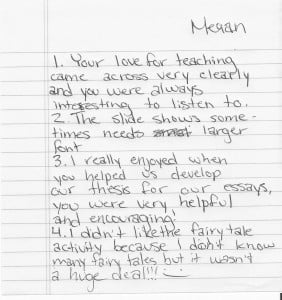 Megan
1. Your love for teaching
came across very clearly
and you were always
interesting to listen to.
2. The slide shows some-
times needs larger
font
3. I really enjoyed when
you helped us develop
our thesis for our essays,
you were very helpful
and encouraging
4. I didn't like the fairy tale
activity because I don't know
many fairy tales but it wasn't
a huge deal!!!